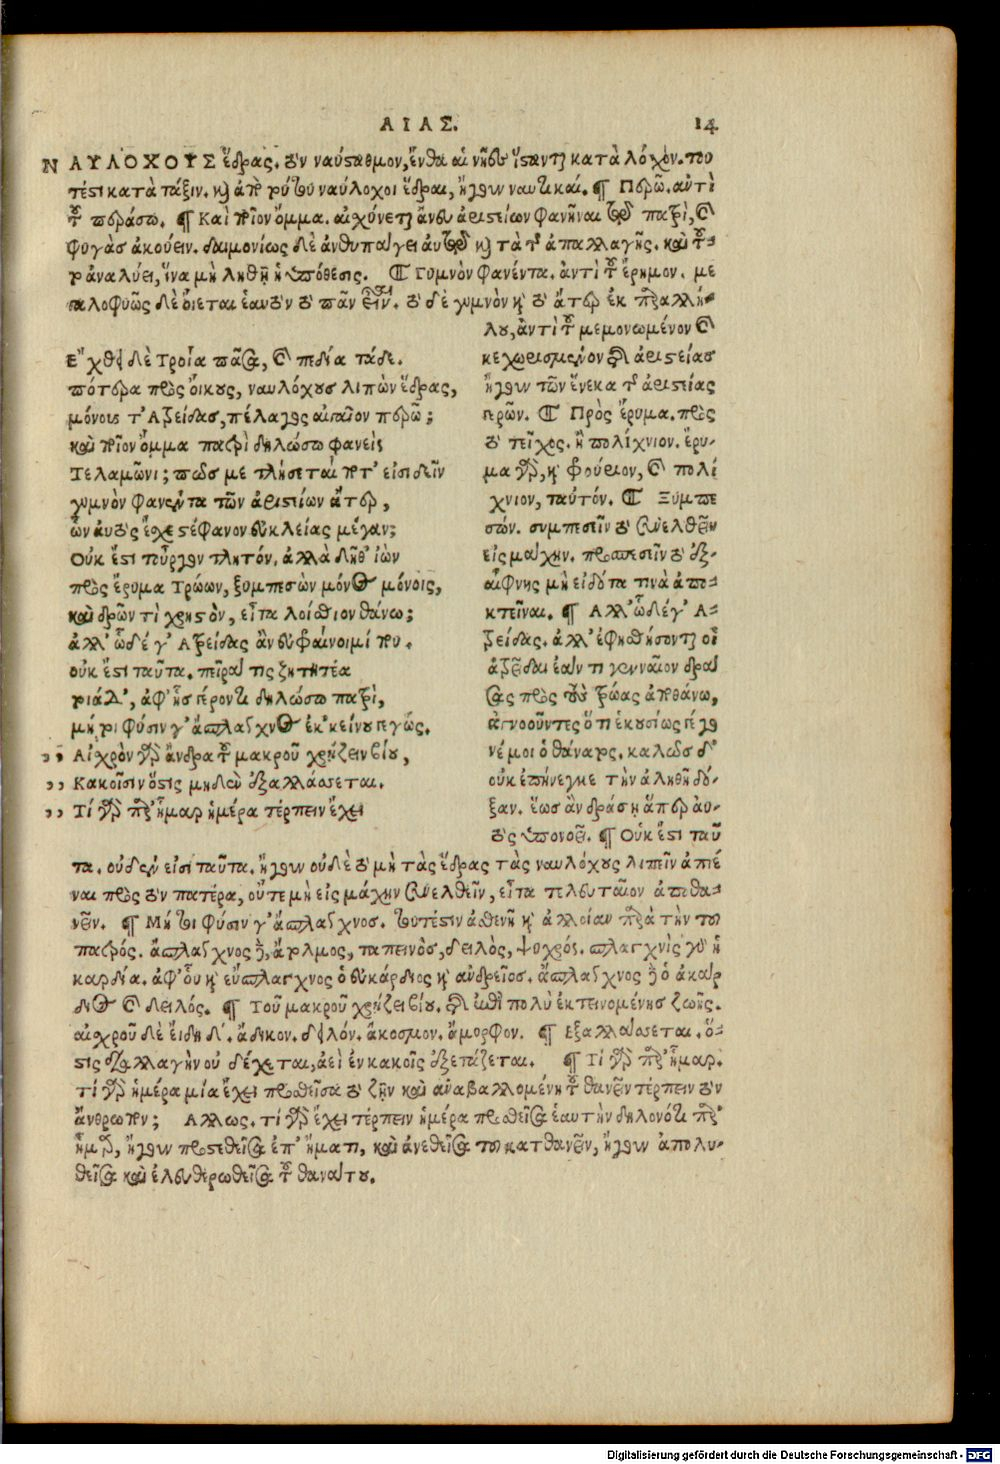 ΑΙΑΣ. 14
ΝΑΥΛΟΧΟΥΣ ἕδρας. τὸν ναύσταθμον, ἔνθα αἱ νῆες ἵστανται κατὰ λόχον. του
τέστι κατὰ τάξιν. καὶ ἀπὸ τούτου ναύλοχοι ἕδραι, ἤγουν ναυτικαί. ¶ Περῶ. ἀντὶ
τοῦ περάσω. ¶ Καὶ ποῖον ὄμμα. αἰσχύνεται ἄνευ ἀριστείων φανῆναι τῷ πατρὶ, καὶ
φυγὰς ἀκούειν. δαιμονίως δὲ ἀνθυπάγει αὐτῷ καὶ τὰ τῆς ἀπαλλαγῆς. καὶ
ἀναλύει, ἵνα μὴ ληφθῇ ἡ ὑπόθεσις. ¶ Γυμνὸν φανέντα. ἀντὶ τοῦ ἔρημον. με
γαλοφυῶς δὲ οἴεται ἑαυτὸν τὸ πᾶν εἶναι. τὸ δὲ γυμνὸν καὶ τὸ ἄτερ ἐκ παραλλή-
λου, ἀντὶ τοῦ μεμονωμένον καὶ
κεχωρισμένον διὰ ἀριστείας
ἤγουν τῶν ἕνεκα τῆς ἀριστείας
γερῶν. ¶ Πρὸς ἔρυμα. πρὸς
τὸ τεῖχος. ἢ πολίχνιον. ἔρυ-
μα γὰρ, καὶ φρούριον, καὶ πολί
χνιον, ταὐτόν. ¶ Ξυμπε
σών. συμπεσεῖν τὸ συνελθεῖν
εἰς μάχην. προσπεσεῖν τὸ ἐξ-
αίφνης μὴ εἰδότα τινὰ ἀπο-
κτεῖναι. ¶ Ἀλλ' ὧδέ γ' Ἀ-
τρείδας. ἀλλ' ἐφησθήσονται οἱ
ἀτρεῖδαι ἐάν τι γενναῖον δρά
σας πρὸς τοὺς τρῶας ἀποθάνω,
ἀγνοοῦντες ὅτι ἑκουσίως γέγο
νέ μοι ὁ θάνατος. καλῶς δ'
οὐκ ἐπήνεγκε τὴν ἀληθῆ δό-
ξαν. ἕως ἂν δράσῃ ἅπερ αὐ-
τὸς ὑπονοεῖ. ¶ Οὐκ ἔστι ταῦ
Ἔχθει δὲ Τροία πᾶσα, καὶ πεδία τάδε.
πότερα πρὸς οἴκους, ναυλόχους λιπὼν ἕδρας,
μόνους τ' Ἀτρείδας, πέλαγος αἰγαῖον περῶ;
καὶ ποῖον ὄμμα πατρὶ δηλώσω φανεὶς
Τελαμῶνι; πῶς με τλήσεταί ποτ' εἰσιδεῖν
γυμνὸν φανέντα τῶν ἀριστείων ἄτερ,
ὧν αὐτὸς ἔσχε στέφανον εὐκλείας μέγαν;
Οὐκ ἔστι τοὖργον τλητόν, ἀλλὰ δῆθ' ἰὼν
πρὸς ἔρυμα Τρώων, ξυμπεσὼν μόνος μόνοις,
καὶ δρῶν τὶ χρηστὸν, εἶτα λοίσθιον θάνω;
ἀλλ' ὧδέ γ' Ἀτρείδας ἂν εὐφράνοιμί που.
οὐκ ἔστι ταῦτα. πεῖρά τις ζητητέα
τοιάδ', ἀφ' ἧς γέροντι δηλώσω πατρὶ,
μή τοι φύσιν γ' ἄσπλαγχνος ἐκ κείνου γεγώς.
,, Αἰσχρὸν γὰρ ἄνδρα τοῦ μακροῦ χρῄζειν βίου,
,, Κακοῖσιν ὅστις μηδὲν ἐξαλλάσσεται.
,, Τί γὰρ παρ' ἦμαρ ἡμέρα τέρπειν ἔχει
τα. οὐδὲν εἰσὶ ταῦτα. ἤγουν οὐδὲ τὸ μὴ τὰς ἕδρας τὰς ναυλόχους λιπεῖν ἀπιέ
ναι πρὸς τὸν πατέρα, οὔτε μὴ εἰς μάχην συνελθεῖν, εἶτα τελευταῖον ἀποθα-
νεῖν. ¶ Μή τοι φύσιν γ' ἄσπλαγχνος. τουτέστιν ἀσθενῆ καὶ ἀλλοίαν παρὰ τὴν τοῦ
πατρός. ἄσπλαγχνος γὰρ, ἄτολμος, ταπεινὸς, δειλὸς, ψυχρός. σπλάγχνις γὰρ ἡ
καρδία. ἀφ' οὗ καὶ εὔσπλαγχνος ὁ εὐκάρδιος καὶ ἀνδρεῖος. ἄσπλαγχνος γὰρ ὁ ἀκάρ
διος καὶ δειλός. ¶ Τοῦ μακροῦ χρῄζει βίου. διὰ πολὺ ἐκτεινομένης ζωῆς.
αἰσχροῦ δὲ εἴδη δ'. ἄδικον. δειλόν. ἄκοσμον. ἄμορφον. ¶ Ἐξαλλάσσεται. ὅ-
στις διαλλαγὴν οὐ δέχεται, ἀεὶ ἐν κακοῖς ἐξετάζεται. ¶ Τί γὰρ παρ' ἦμαρ.
τί γὰρ ἡμέρα μία ἔχει προσθεῖσα τὸ ζῆν καὶ ἀναβαλλομένη τοῦ θανεῖν τέρπειν τὸν
ἄνθρωπον; Ἄλλως. τί γὰρ ἔχει τέρπειν ἡμέρα προσθεῖσα ἑαυτὴν δηλονότι παρ'
ἦμαρ, ἤγουν προστεθεῖσα ἐπ' ἤματι, καὶ ἀνεθεῖσα τοῦ κατθανεῖν, ἤγουν ἀπολυ-
θεῖσα καὶ ἐλευθερωθεῖσα τοῦ θανάτου.
Digitalisierung gefördert durch die Deutsche Forschungsgemeinschaft - DFG